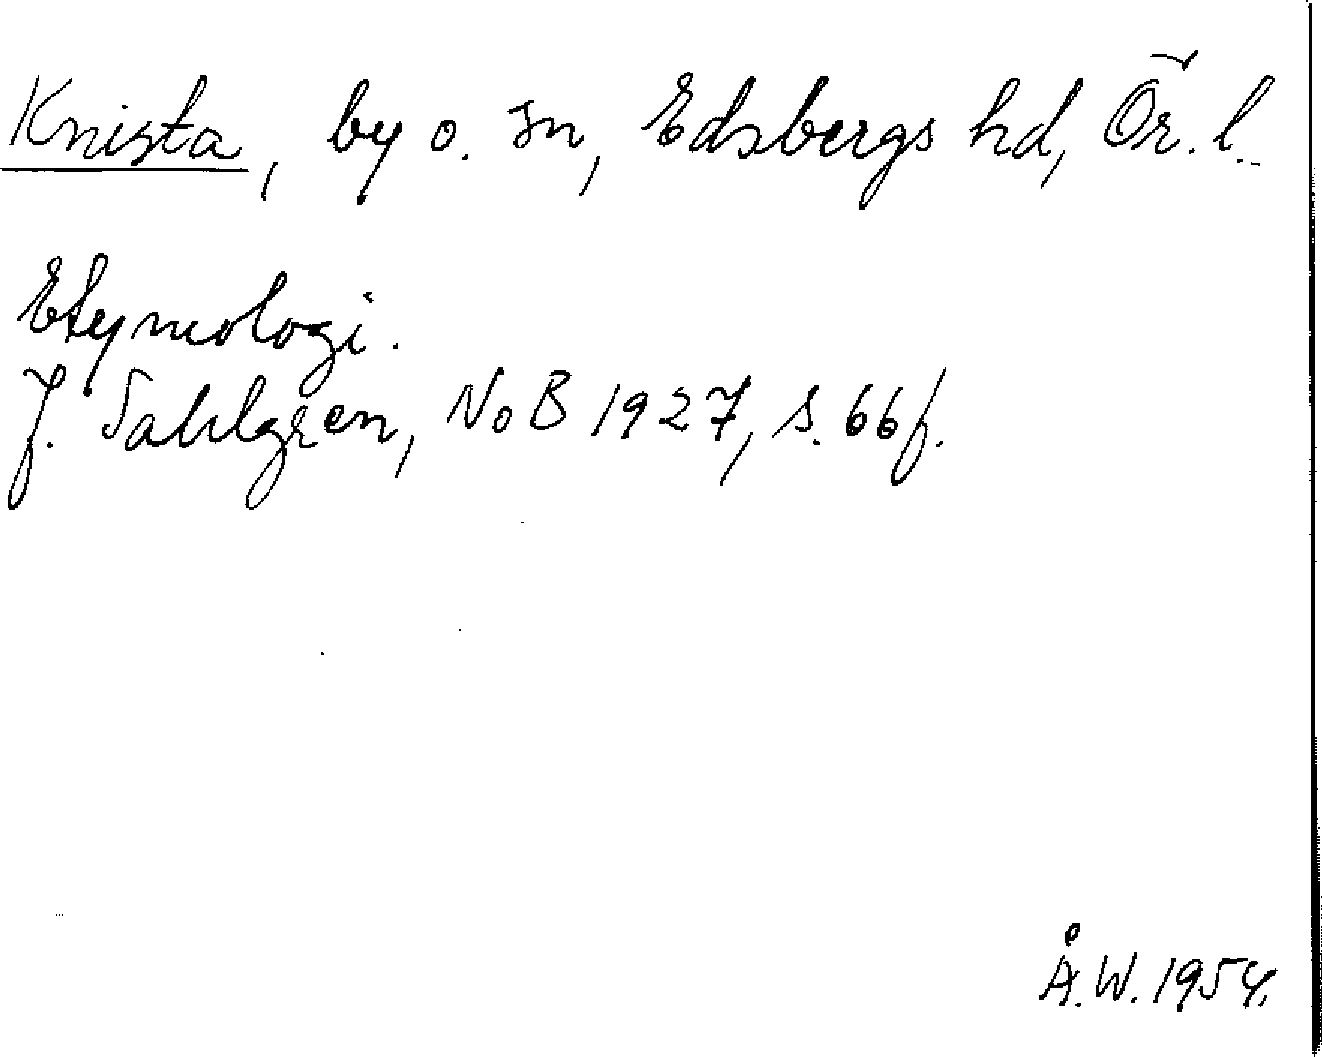 Knista, by o. sn, Edsbergs hd, Ör. l.
Etymologi.
J. Sahlgren, NoB 1927, s. 66f.
Å.W. 1954.